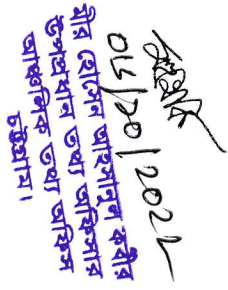 ০৬/১০/২০২২
মীর হোসেন আহসানুল কবীর
উপপ্রধান তথ্য অফিসার
আঞ্চলিক তথ্য অফিস
চট্টগ্রাম।